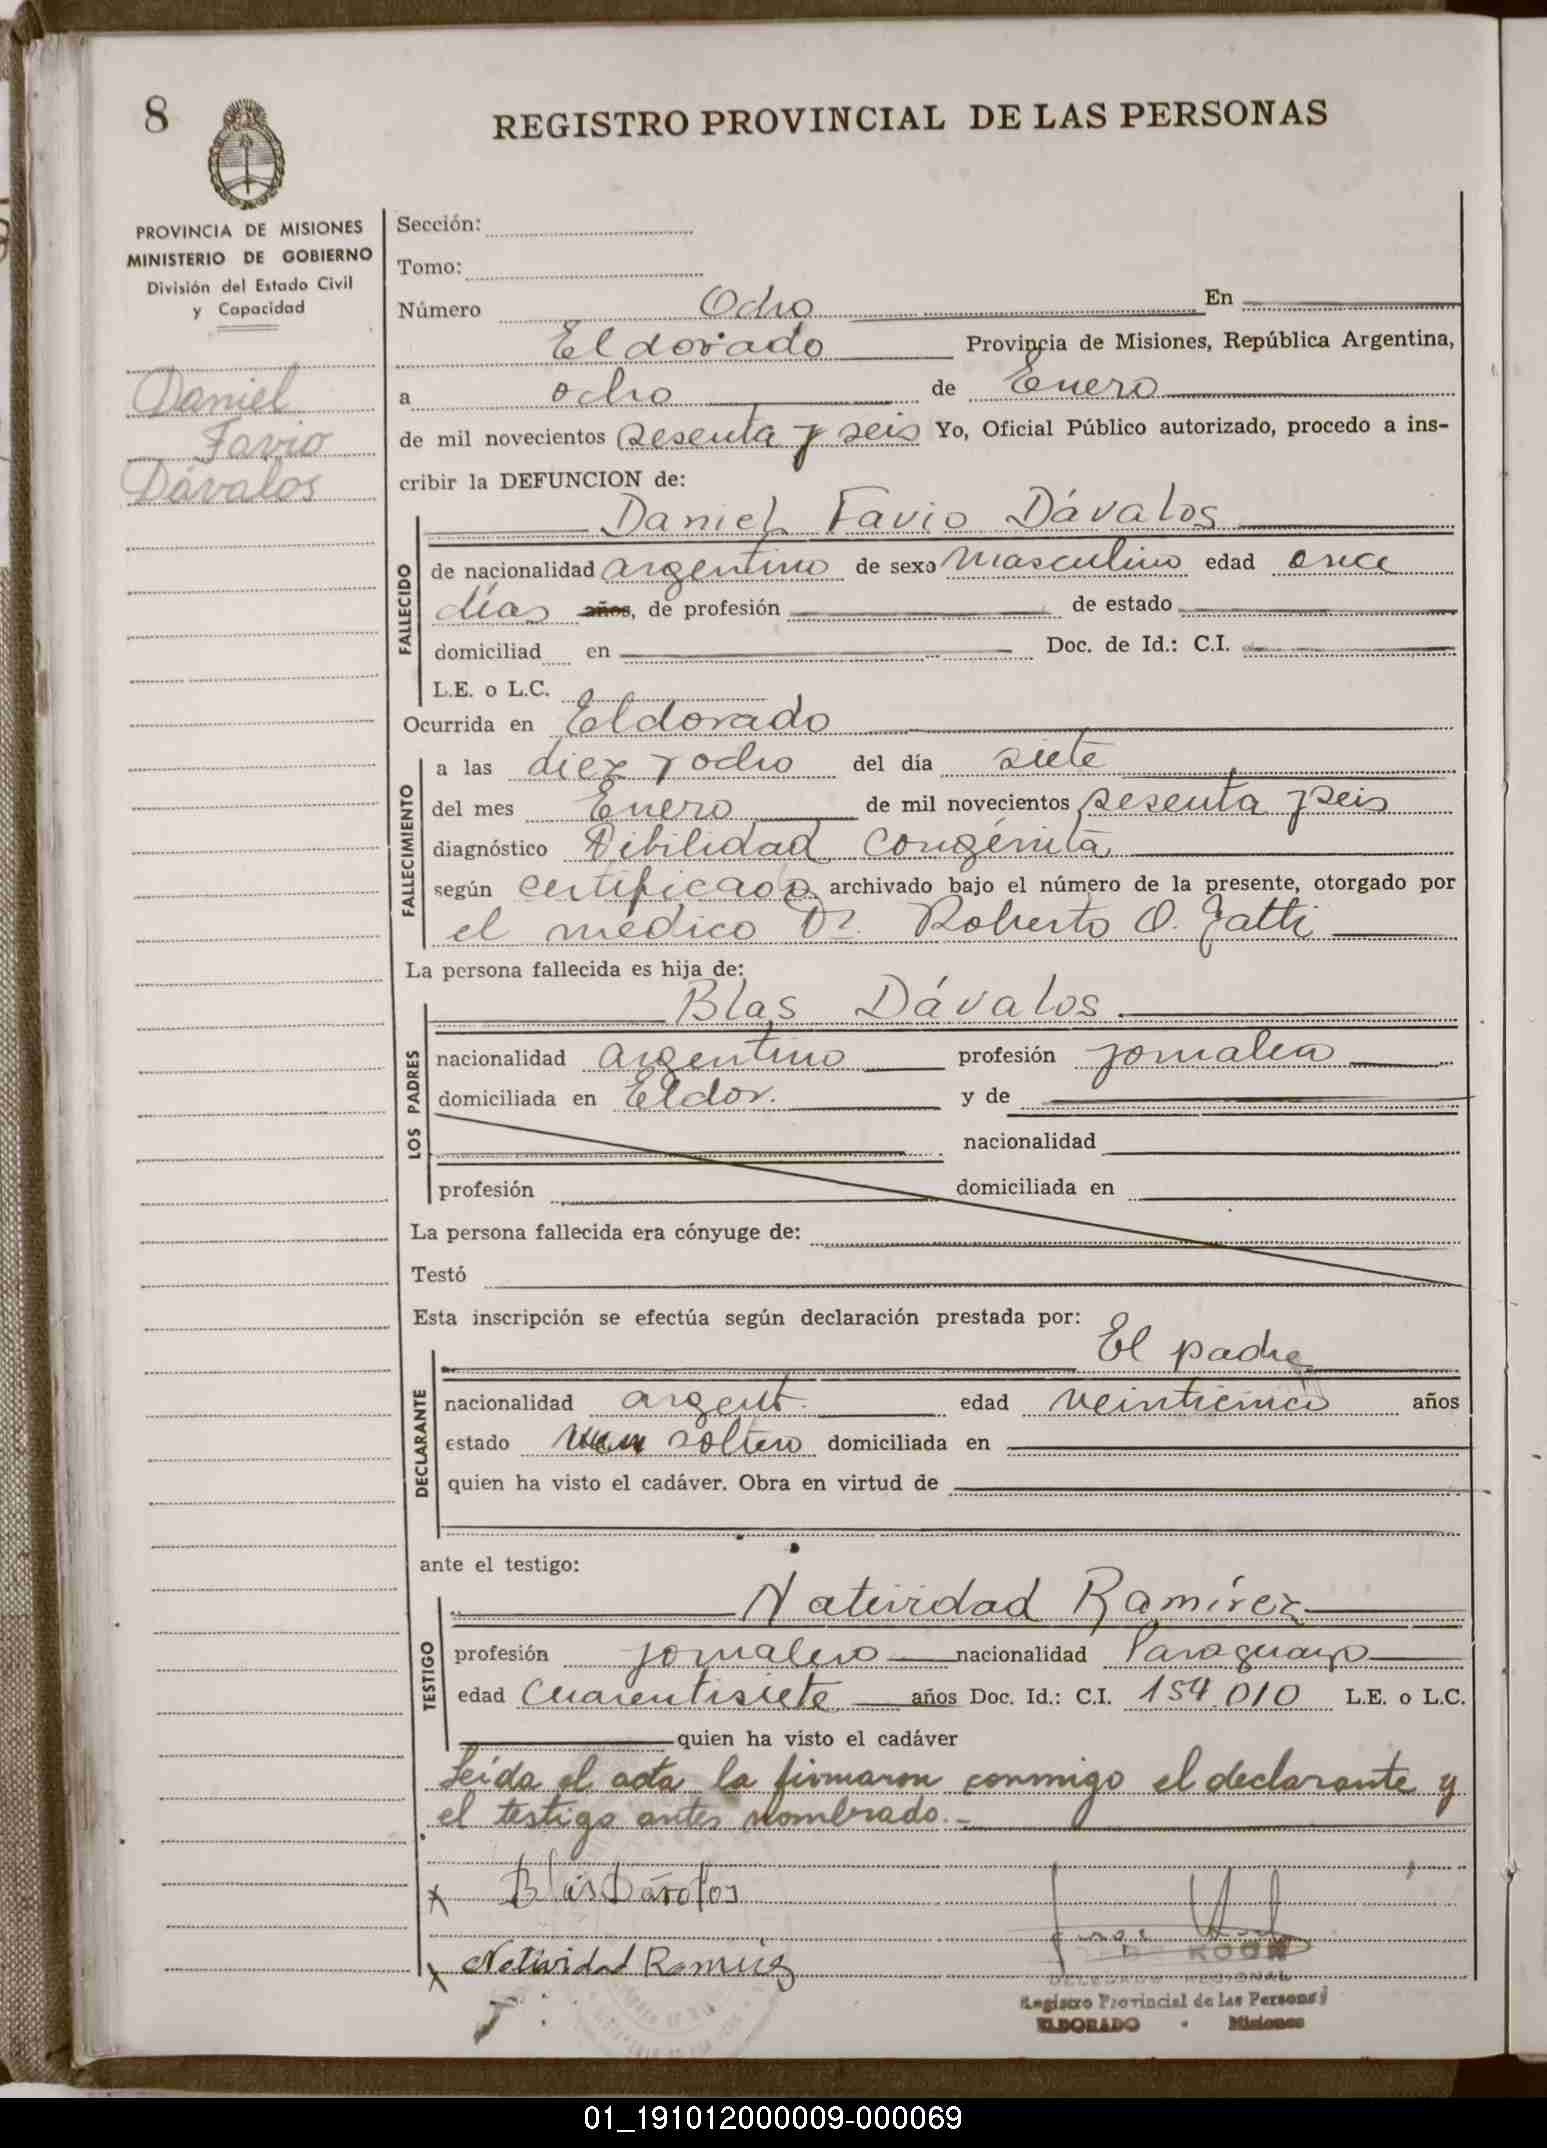 8
REGISTRO PROVINCIAL DE LAS PERSONAS
PROVINCIA DE MISIONES
MINISTERIO DE GOBIERNO
División del Estado Civil
y Capacidad
Daniel
Favio
Dávalos
Sección:
Tomo:
Número Ocho En
Eldorado Provincia de Misiones, República Argentina,
a ocho de Enero
de mil novecientos sesenta y seis Yo, Oficial Público autorizado, procedo a ins-
cribir la DEFUNCION de:
FALLECIDO
Daniel Favio Dávalos
de nacionalidad argentino de sexo masculino edad once
días años, de profesión de estado
domiciliad en Doc. de Id.: C.I.
L.E. o L.C.
Ocurrida en Eldorado
FALLECIMIENTO
a las diez y ocho del día siete
del mes Enero de mil novecientos sesenta y seis
diagnóstico Debilidad congénita
según certificado archivado bajo el número de la presente, otorgado por
el médico Dr. Roberto O. Gatti
La persona fallecida es hija de:
LOS PADRES
Blas Dávalos
nacionalidad argentino profesión jornalero
domiciliada en Eldor. y de
nacionalidad
profesión domiciliada en
La persona fallecida era cónyuge de:
Testó
Esta inscripción se efectúa según declaración prestada por:
DECLARANTE
El padre
nacionalidad argent. edad veinticinco años
estado soltero domiciliada en
quien ha visto el cadáver. Obra en virtud de
ante el testigo:
TESTIGO
Natividad Ramírez
profesión jornalero nacionalidad Paraguayo
edad cuarentisiete años Doc. Id.: C.I. 154.010 L.E. o L.C.
quien ha visto el cadáver
Leída el acta la firmaron conmigo el declarante y
el testigo antes nombrado.-
x Blas Dávalos
x Natividad Ramírez
KOCH
DELEGADO REGIONAL
Registro Provincial de las Personas
ELDORADO - Misiones
01_191012000009-000069